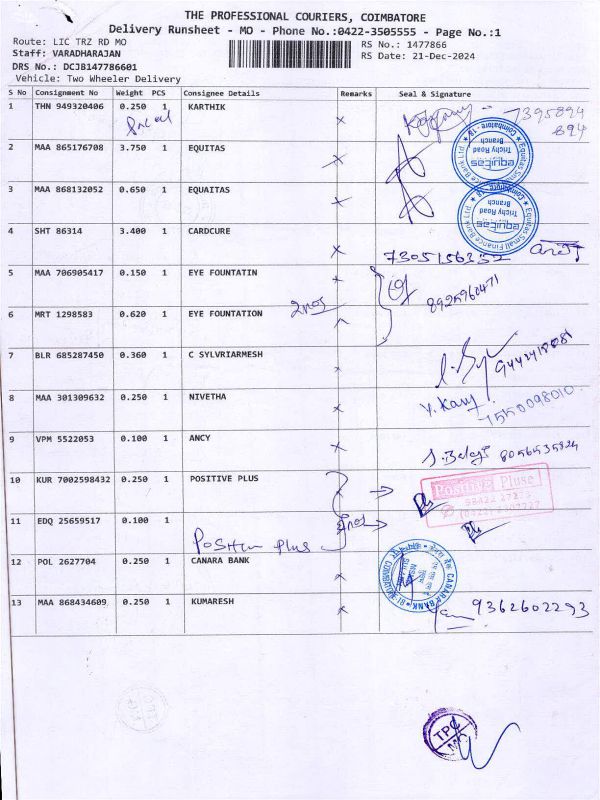 THE PROFESSIONAL COURIERS, COIMBATORE
Delivery Runsheet - MO - Phone No.:0422-3505555 - Page No.:1
Route: LIC TRZ RD MO
RS No.: 1477866
Staff: VARADHARAJAN
RS Date: 21-Dec-2024
DRS No.: DCJB147786601
Vehicle: Two Wheeler Delivery
S No Consignment No Weight PCS Consignee Details Remarks Seal & Signature
1 THN 949320406 0.250 1 KARTHIK
7395894
894
2 MAA 865176708 3.750 1 EQUITAS
Equitas Small Finance Bank Ltd. Coimbatore - 18
equitas
Trichy Road
Branch
3 MAA 868132052 0.650 1 EQUAITAS
Equitas Small Finance Bank Ltd. Coimbatore - 18
equitas
Trichy Road
Branch
4 SHT 86314 3.400 1 CARDCURE
7305156332
5 MAA 706905417 0.150 1 EYE FOUNTATIN
8925960471
6 MRT 1298583 0.620 1 EYE FOUNTATION
2nos
7 BLR 685287450 0.360 1 C SYLVRIARMESH
8 MAA 301309632 0.250 1 NIVETHA
9 VPM 5522053 0.100 1 ANCY
10 KUR 7002598432 0.250 1 POSITIVE PLUS
Positive Pluse
11 EDQ 25659517 0.100 1
2nos
12 POL 2627704 0.250 1 CANARA BANK
CANARA BANK
13 MAA 868434609 0.250 1 KUMARESH
9362602293
TPC
MO